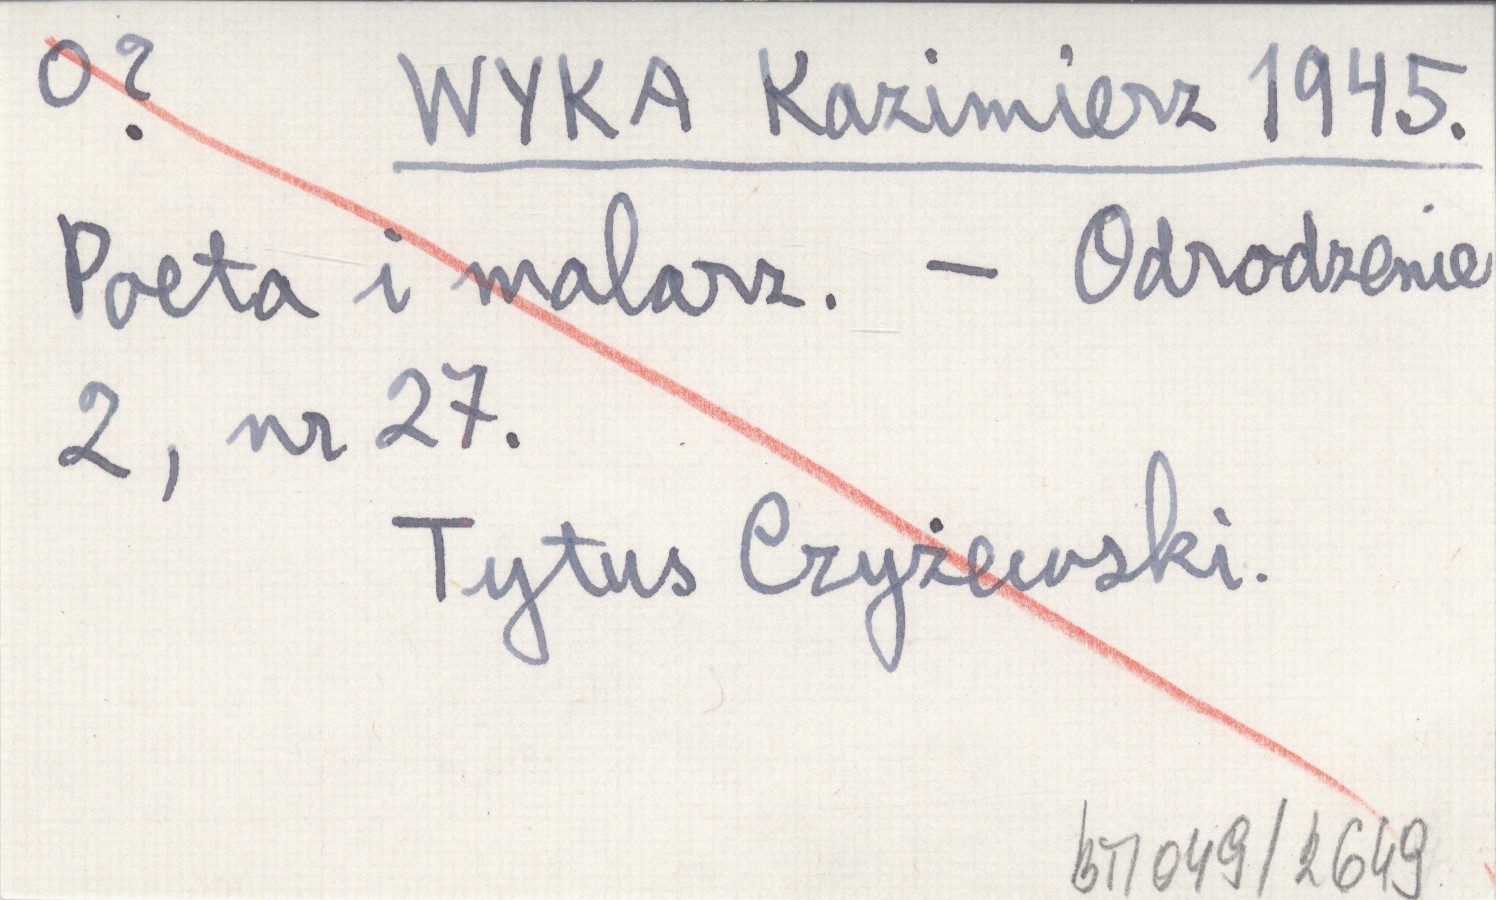 O? WYKA Kazimierz 1945.
Poeta i malarz. — Odrodzenie
2, nr 27.
Tytus Czyżewski.
049/2649